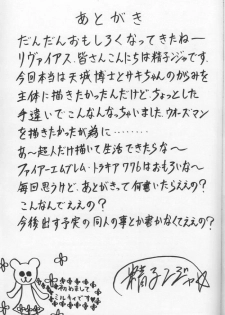 あとがき
だんだんおもしろくなってきたねー
リヴァイアス。皆さんこんにちは精子ンジャです。
今回本当は天城博士とサキちゃんのからみを
主体に描きたかったんだけど、ちょっとした
手違いでこんなんなっちゃいました。ウォーズマン
を描きたかったが為に………
あ〜超人だけ描いて生活できたらな〜
ファイアーエムブレム・トラキア776はおもろいな〜
毎回思うけど、あとがきって何書いたらええの?
こんなんでええの?
今後出す予定の同人の事とか書かなくてええの?
はじめまして
ミルキィです
精子ンジャ